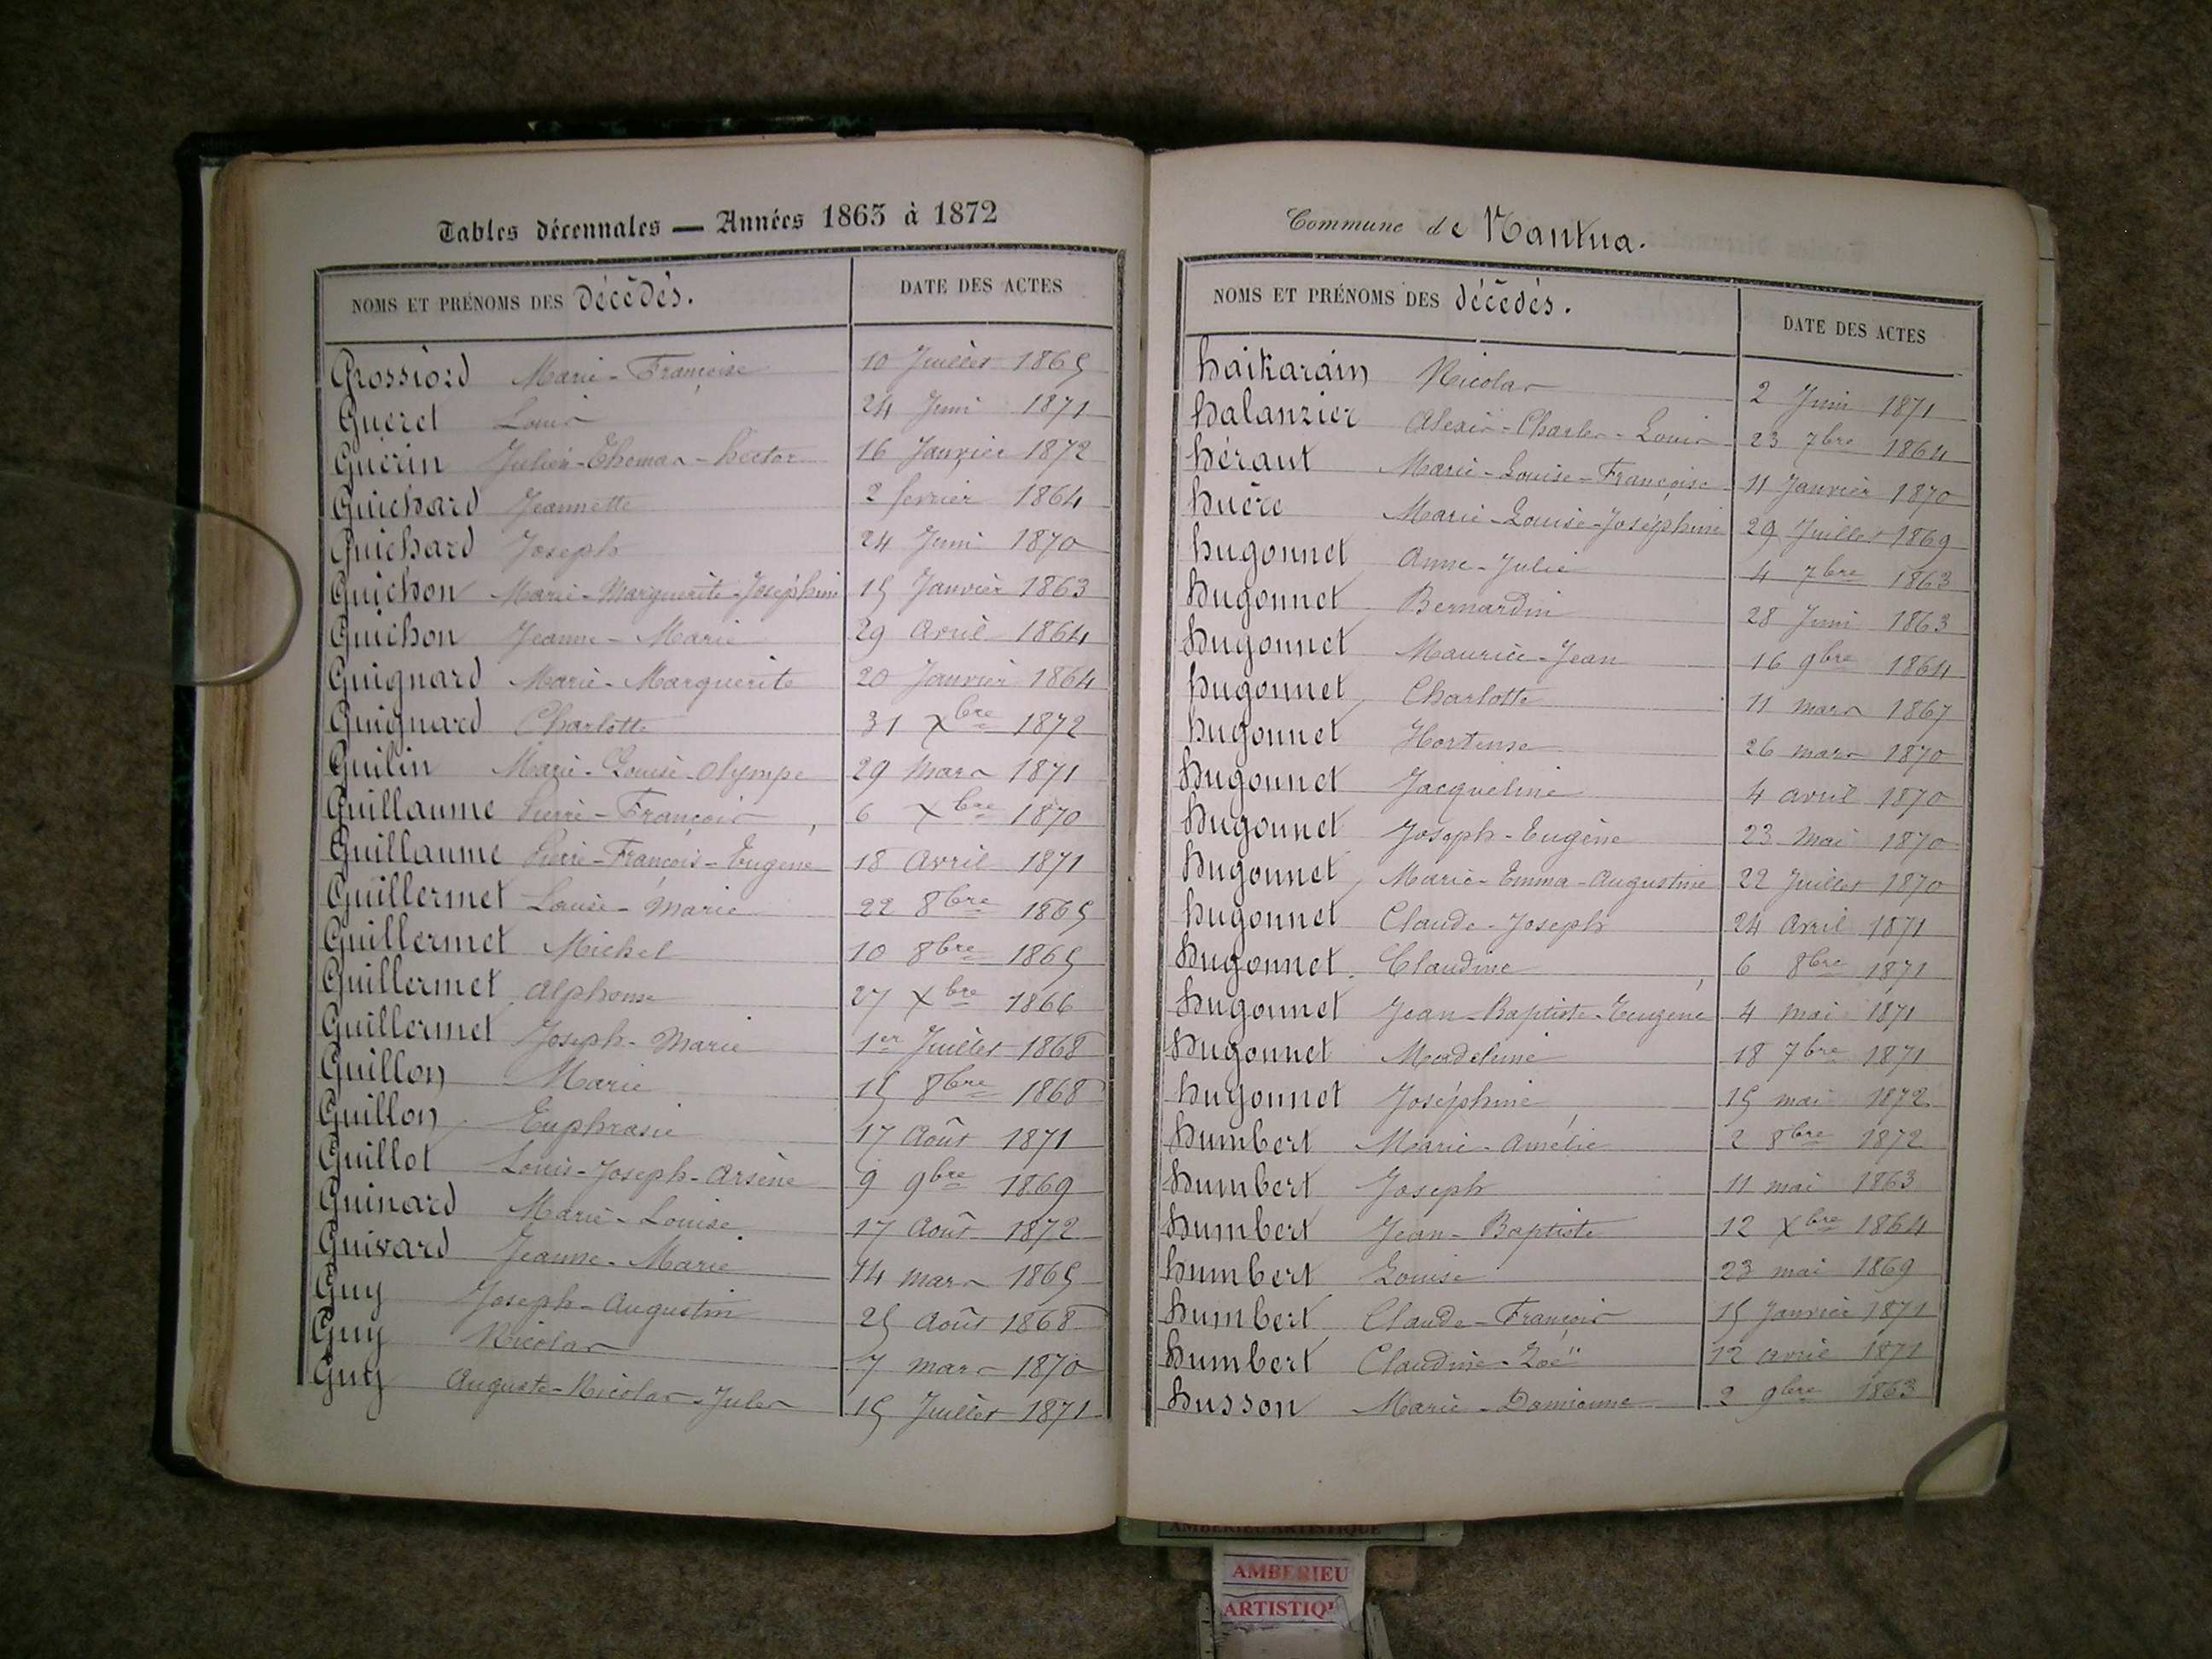 Tables décennales — Années 1863 à 1872
NOMS ET PRÉNOMS DES décédés. DATE DES ACTES
Grossiord Marie-Françoise 10 Juillet 1865
Guéret Louis 24 Juin 1871
Guérin Julien-Thomas-hector 16 Janvier 1872
Guichard Jeannette 2 février 1864
Guichard Joseph 24 Juin 1870
Guichon Marie-Marguerite-Joséphine 15 Janvier 1863
Guichon Jeanne-Marie 29 Avril 1864
Guignard Marie-Marguerite 20 Janvier 1864
Guignard Charlotte 31 Xbre 1872
Guilin Marie-Louise-Olympe 29 Mars 1871
Guillaume Pierre-François 6 Xbre 1870
Guillaume Pierre-François-Eugène 18 Avril 1871
Guillermet Louise-Marie 22 8bre 1865
Guillermet Michel 10 8bre 1865
Guillermet Alphonse 27 Xbre 1866
Guillermet Joseph-Marie 1er Juillet 1868
Guillon Marie 15 8bre 1868
Guillon Euphrasie 17 Août 1871
Guillot Louis-Joseph-Arsène 9 9bre 1869
Guinard Marie-Louise 17 Août 1872
Guivard Jeanne-Marie 14 mars 1865
Guy Joseph-Augustin 25 Août 1868
Guy Nicolas 7 mars 1870
Guy Auguste-Nicolas-Jules 15 Juillet 1871
Commune de Nantua.
NOMS ET PRÉNOMS DES décédés. DATE DES ACTES
haikarain Nicolas 2 Juin 1871
halanzier Alexis-Charles-Louis 23 7bre 1864
héraut Marie-Louise-Françoise 11 Janvier 1870
huère Marie-Louise-Joséphine 29 Juillet 1869
hugonnet Anne-Julie 4 7bre 1863
hugonnet Bernardin 28 Juin 1863
hugonnet Maurice-Jean 16 9bre 1864
hugonnet Charlotte 11 mars 1867
hugonnet Hortense 26 mars 1870
hugonnet Jacqueline 4 avril 1870
hugonnet Joseph-Eugène 23 Mai 1870
hugonnet Marie-Emma-Augustine 22 Juillet 1870
hugonnet Claude-Joseph 24 Avril 1871
hugonnet Claudine 6 8bre 1871
hugonnet Jean-Baptiste-Eugène 4 mai 1871
hugonnet Madeleine 18 7bre 1871
hugonnet Joséphine 15 mai 1872
humbert Marie-Amélie 2 8bre 1872
humbert Joseph 11 mai 1863
humbert Jean-Baptiste 12 Xbre 1864
humbert Louise 23 mai 1869
humbert Claude-François 15 Janvier 1871
humbert Claudine-Zoé 12 avril 1871
husson Marie-Damienne 2 9bre 1863
AMBERIEU ARTISTIQUE
AMBERIEU
ARTISTIQ